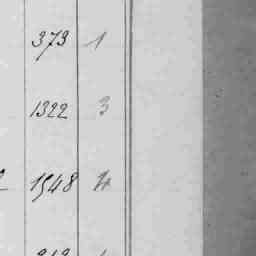 373 1
1322 3
1548